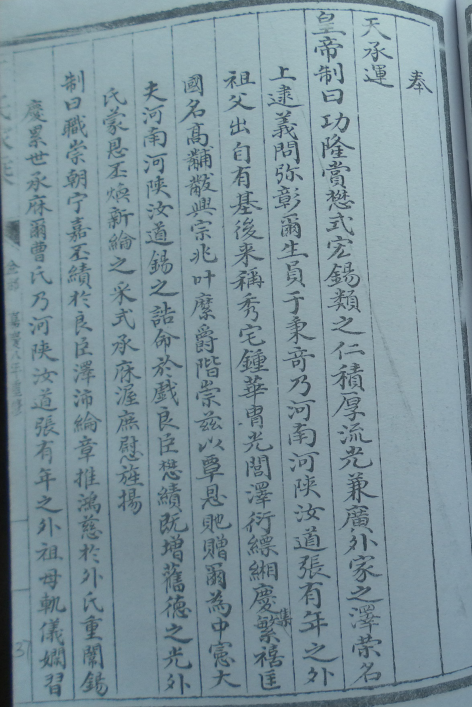 奉
天承運
皇帝制曰功隆賞懋式宏錫類之仁積厚流光兼廣外家之澤榮名
上逮義問弥彰爾生員于秉奇乃河南河陝汝道張有年之外
祖父出自有基後来稱秀宅鍾華胄光閭澤衍縹緗慶繁禧匡
集
國名高黼黻興宗兆叶縻爵階崇兹以覃恩貤贈爾為中憲大
夫河南河陝汝道錫之誥命於戲良臣懋績既增舊德之光外
氏蒙恩丕煥新綸之采式承庥渥庶慰旌揚
制曰職崇朝宁嘉丕績於良臣澤沛綸章推鴻慈於外氏重闈錫
慶累世承庥爾曹氏乃河陝汝道張有年之外祖母軌儀嫻習